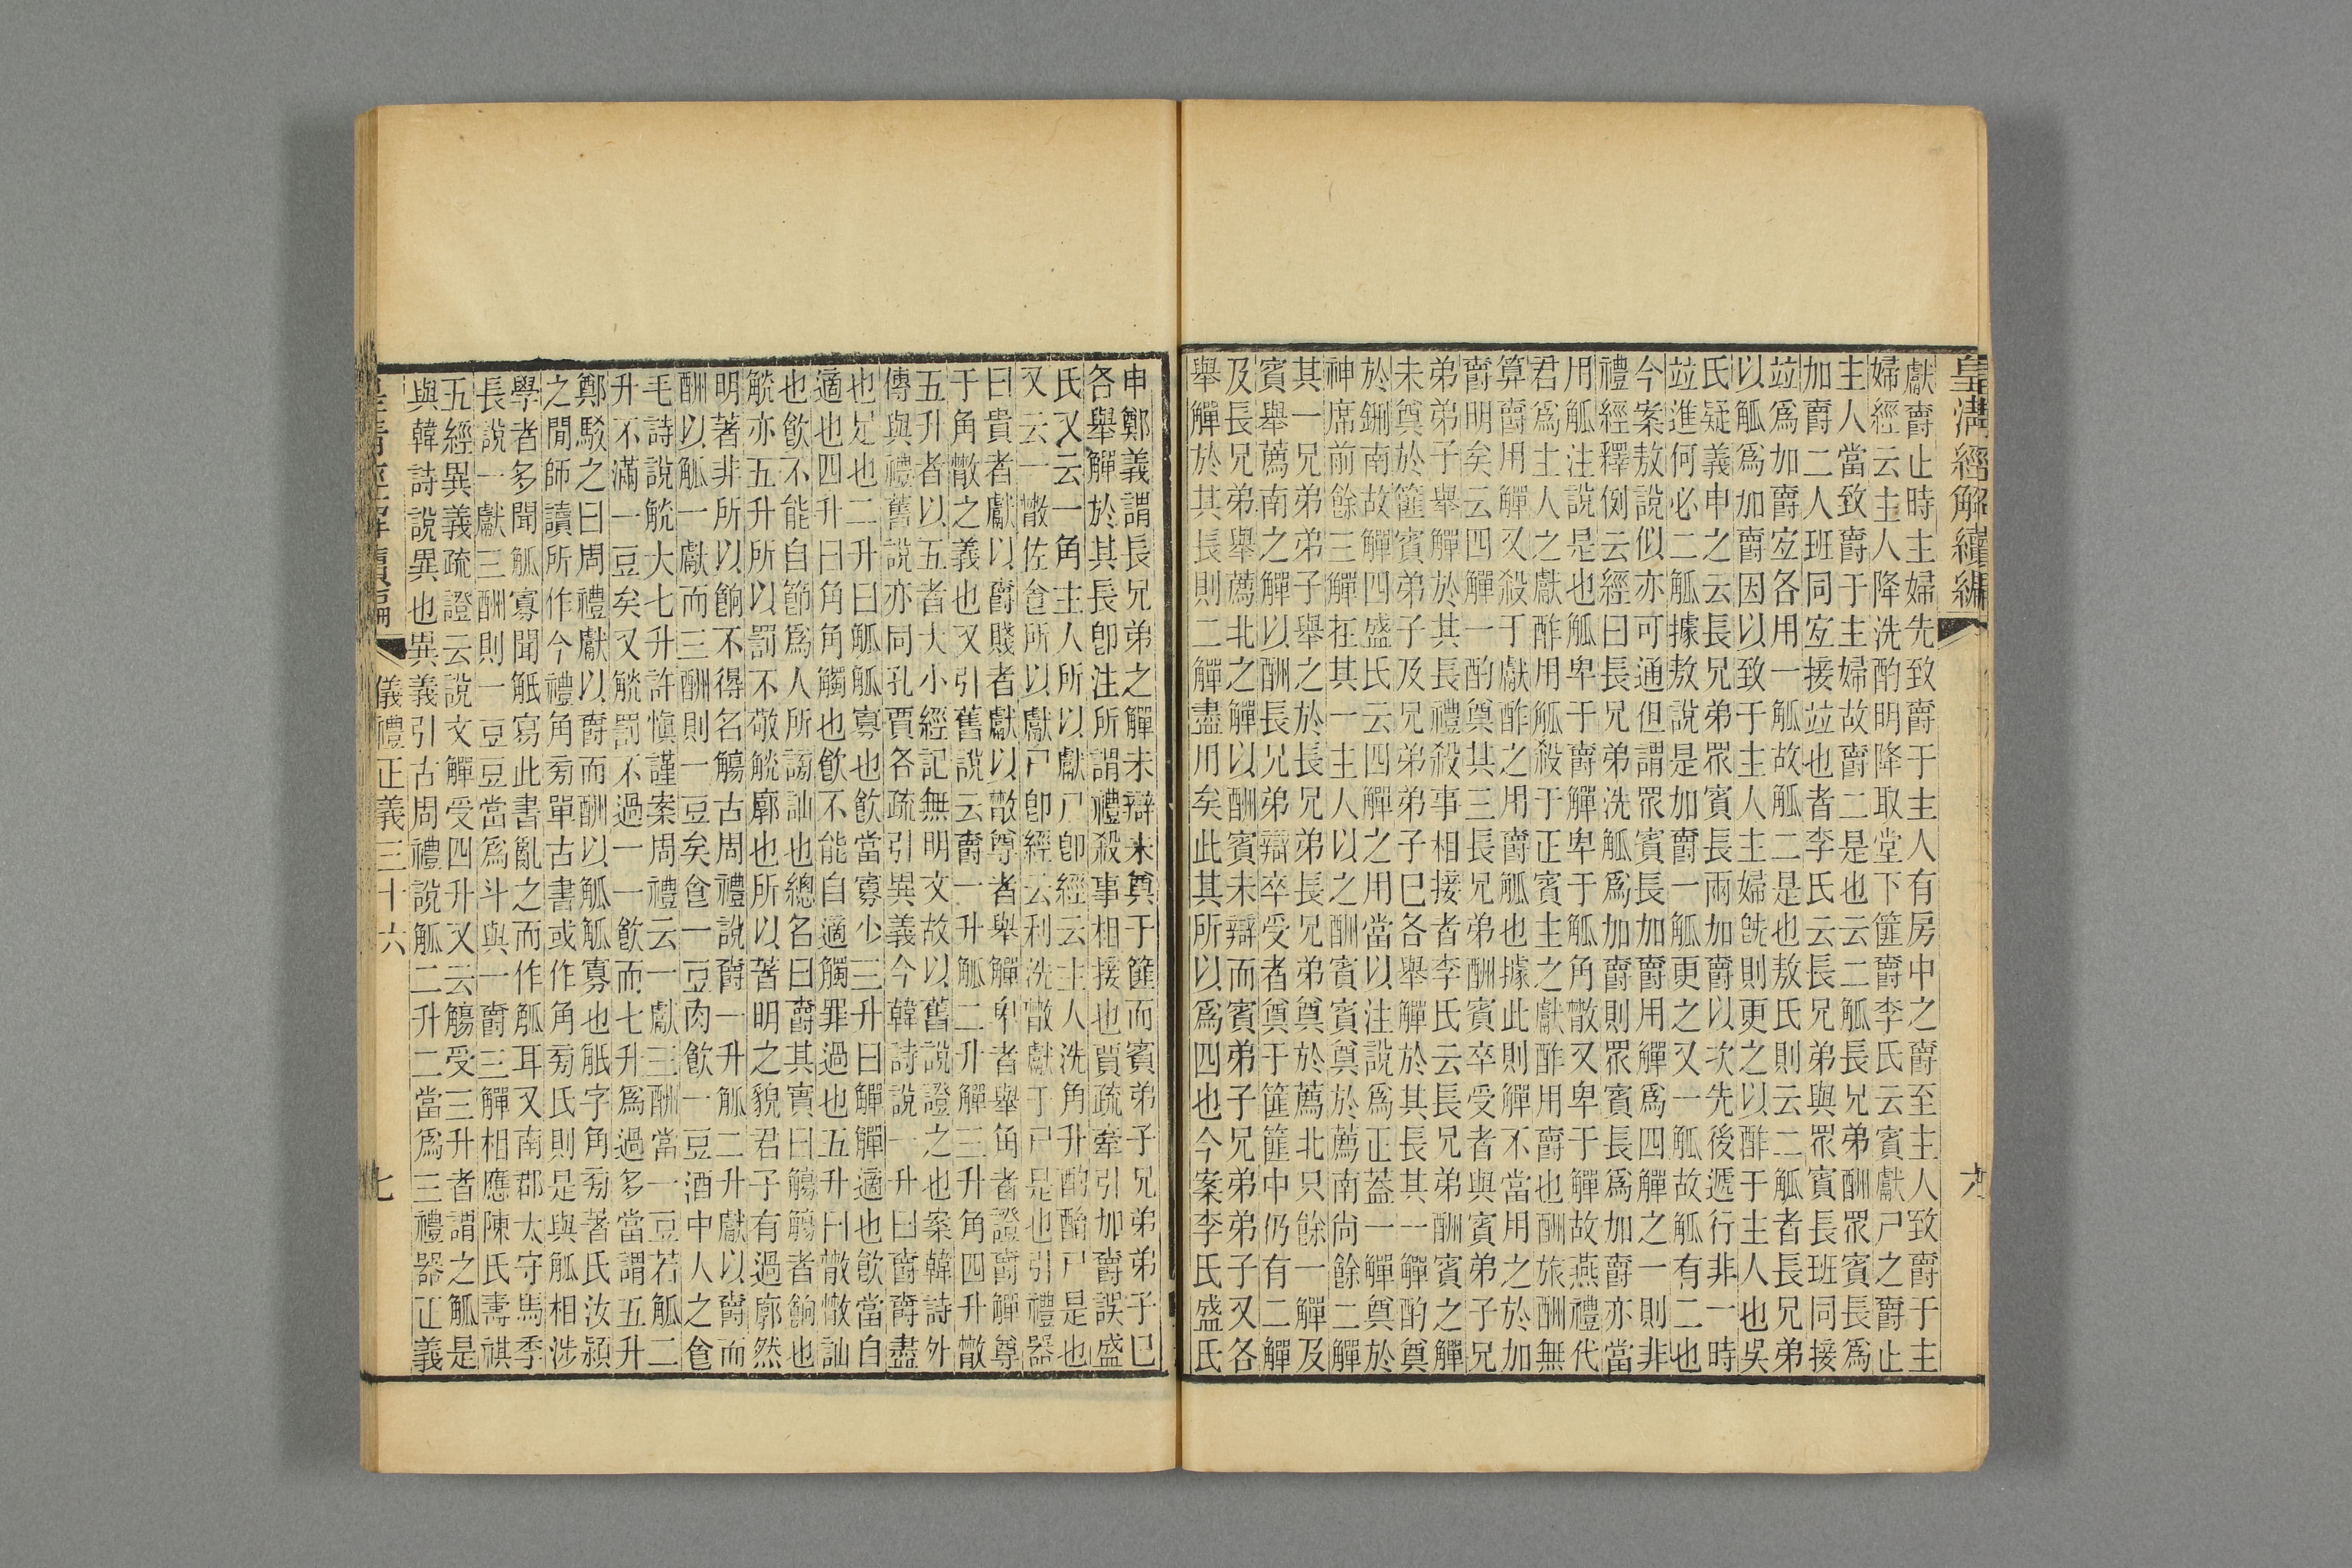 皇淸經解續編
獻爵止時主婦先致爵于主人有房中之爵至主人致爵于主
婦經云主人降洗酌明降取堂下篚爵李氏云賓獻尸之爵止
主人當致爵于主婦故爵二是也云二觚長兄弟酬眾賓長爲
加爵二人班同宜接竝也者李氏云長兄弟與眾賓長班同接
竝爲加爵宜各用一觚故觚二是也敖氏則云二觚者長兄弟
以觚爲加爵因以致于主人主婦旣則更之以酢于主人也吳
氏疑義申之云長兄弟眾賓長兩加爵以次先後遞行非一時
竝進何必二觚據敖說是加爵一觚更之又一觚故觚有二也
今案敖說似亦可通但謂眾賓長加爵用觶爲四觶之一則非
禮經釋例云經曰長兄弟洗觚爲加爵則眾賓長爲加爵亦當
用觚注說是也觚卑于爵觶卑于觚角散又卑于觶故燕禮代
君爲主人之獻酢用觚殺于正賓主之獻酢用爵也酬旅酬無
算爵用觶又殺于獻酢之用爵觚也據此則觶不當用之於加
爵明矣云四觶一酌奠其三長兄弟酬賓卒受者與賓弟子兄
弟弟子舉觶於其長禮殺事相接者李氏云長兄弟酬賓之觶
未奠於篚賓弟子及兄弟弟子巳各舉觶於其長其一觶酌奠
於鉶南故觶四盛氏云四觶之用當以注說爲正蓋一觶奠於
神席前餘三觶在其一主人以之酬賓賓奠於薦南尚餘二觶
其一兄弟弟子舉之於長兄弟長兄弟奠於薦北只餘一觶及
賓舉薦南之觶以酬長兄弟辯卒受者奠于篚篚中仍有二觶
及長兄弟舉薦北之觶以酬賓未辯而賓弟子兄弟弟子又各
舉觶於其長則二觶盡用矣此其所以爲四也今案李氏盛氏
申鄭義謂長兄弟之觶未辯未奠于篚而賓弟子兄弟弟子巳
各舉觶於其長卽注所謂禮殺事相接也賈疏牽引加爵誤盛
氏又云一角主人所以獻尸卽經云主人洗角升酌酳尸是也
又云一散佐食所以獻尸卽經云利洗散獻于尸是也引禮器
曰貴者獻以爵賤者獻以散尊者舉觶卑者舉角者證爵觶尊
于角散之義也又引舊說云爵一升觚二升觶三升角四升散
五升者以五者大小經記無明文故以舊說證之也案韓詩外
傳與禮舊說亦同孔賈各疏引異義今韓詩說一升曰爵爵盡
也足也二升曰觚觚寡也飮當寡少三升曰觶觶適也飮當自
適也四升曰角角觸也飮不能自適觸罪過也五升曰散散訕
也飮不能自節爲人所謗訕也總名曰爵其實曰觴觴者餉也
觥亦五升所以罰不敬觥廓也所以著明之貌君子有過廓然
明著非所以餉不得名觴古周禮說爵一升觚二升獻以爵而
酬以觚一獻而三酬則一豆矣食一豆肉飮一豆酒中人之食
毛詩說觥大七升許愼謹案周禮云一獻三酬當一豆若觚二
升不滿一豆矣又觥罰不過一一飮而七升爲過多當謂五升
鄭駁之曰周禮獻以爵而酬以觚觚寡也觗字角旁著氏汝潁
之閒師讀所作今禮角旁單古書或作角旁氏則是與觚相涉
學者多聞觚寡聞觗寫此書亂之而作觚耳又南郡太守馬季
長說一獻三酬則一豆豆當爲斗與一爵三觶相應陳氏壽祺
五經異義疏證云說文觶受四升又云觴受三升者謂之觚是
與韓詩說異也異義引古周禮說觚二升二當爲三禮器正義
皇淸經解續編
儀禮正義三十六
七